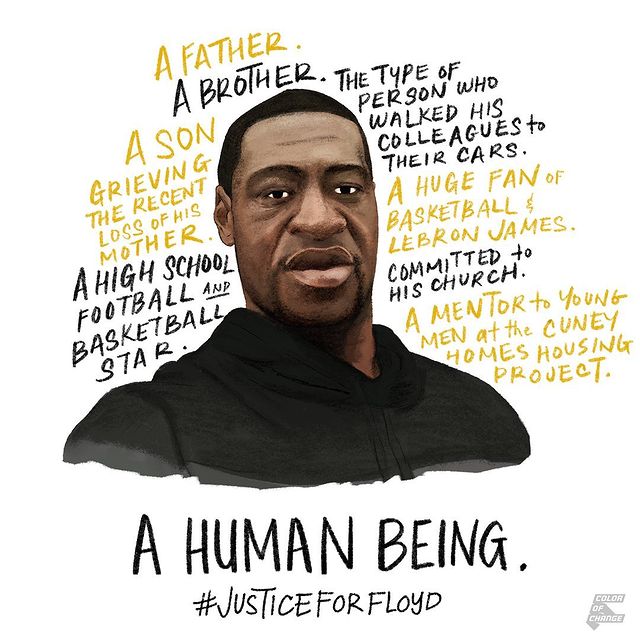 A FATHER.
A BROTHER.
A SON
GRIEVING
THE RECENT
LOSS OF HIS
MOTHER.
A HIGH SCHOOL
FOOTBALL AND
BASKETBALL
STAR.
THE TYPE OF
PERSON WHO
WALKED HIS
COLLEAGUES to
THEIR CARS.
A HUGE FAN OF
BASKETBALL &
LEBRON JAMES.
COMMITTED to
HIS CHURCH.
A MENTOR to YOUNG
MEN at the CUNEY
HOMES HOUSING
PROJECT.
A HUMAN BEING.
#JUSTICEFORFLOYD
COLOR
OF
CHANGE